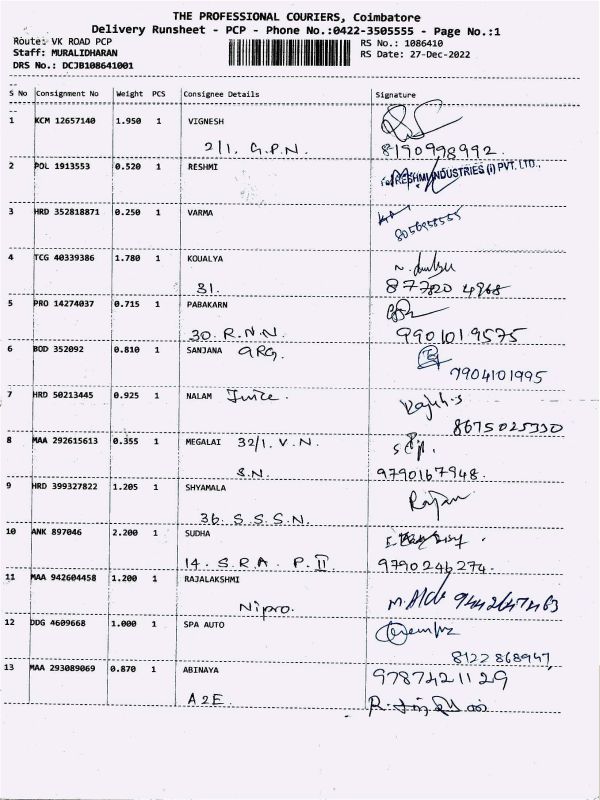 THE PROFESSIONAL COURIERS, Coimbatore
Delivery Runsheet - PCP - Phone No.:0422-3505555 - Page No.:1
Route: VK ROAD PCP RS No.: 1086410
Staff: MURALIDHARAN RS Date: 27-Dec-2022
DRS No.: DCJB108641001
S No Consignment No Weight PCS Consignee Details Signature
1 KCM 12657140 1.950 1 VIGNESH
2/1. G.P.N. 8190998992.
2 POL 1913553 0.520 1 RESHMI
For RESHMI INDUSTRIES (I) PVT. LTD.,
3 HRD 352818871 0.250 1 VARMA
8056958555
4 TCG 40339386 1.780 1 KOUALYA
31. 877204968
5 PRO 14274037 0.715 1 PABAKARN
30. R.N.N. 9901019575
6 BOD 352092 0.810 1 SANJANA GRG.
7904101995
7 HRD 50213445 0.925 1 NALAM Juice.
8675025330
8 MAA 292615613 0.355 1 MEGALAI 32/1. V.N.
S.N. 9790167948.
9 HRD 399327822 1.205 1 SHYAMALA Rajan
36. S.S.S.N.
10 ANK 897046 2.200 1 SUDHA
14. S.R.A. P.II 9790246274.
11 MAA 942604458 1.200 1 RAJALAKSHMI
Nipro. 9442647463
12 DDG 4609668 1.000 1 SPA AUTO
8122868947
13 MAA 293089069 0.870 1 ABINAYA 9787421129
A2E.